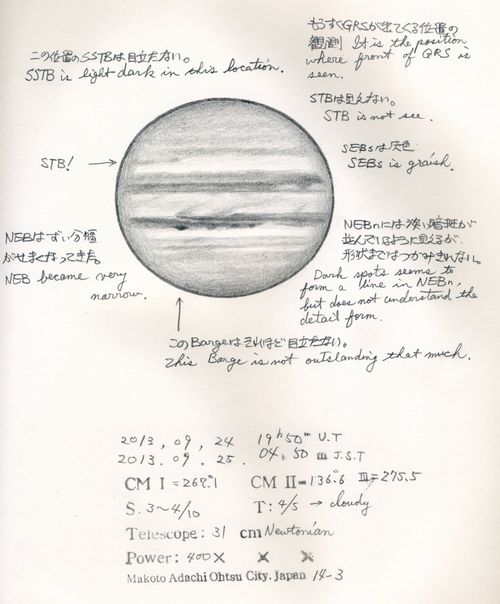 もうすぐGRSが出てくる位置の
観測 It is the position
where front of GRS is
seen.
この位置のSSTBは目立たない。
SSTB is light dark in this location.
STBは見えない。
STB is not see.
STB!
SEBsは灰色
SEBs is graish.
NEBはずい分幅
がせまくなってきた。
NEB became very
narrow.
NEBnには淡い暗斑が
並んでいるように見えるが、
形状まではつかみきれない。
Dark spots seems to
form a line in NEBn,
but does not understand the
detail form.
このBargeはそれほど目立たない。
This Barge is not outstanding that much.
2013, 09, 24 19h50m U.T
2013. 09. 25. 04. 50 m J.S.T
CM I = 269.°1 CM II = 136.°6 III = 275.5
S. 3~4/10 T: 4/5 → cloudy
Telescope: 31 cm Newtonian
Power: 400× × ×
Makoto Adachi Ohtsu City. Japan 14-3